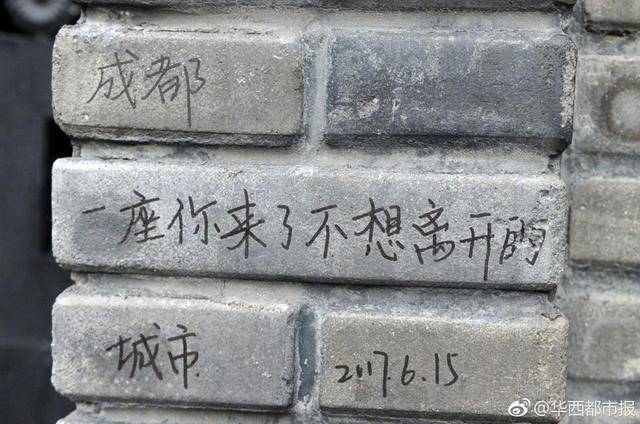 成都
一座你来了不想离开的
城市 2017.6.15
@华西都市报